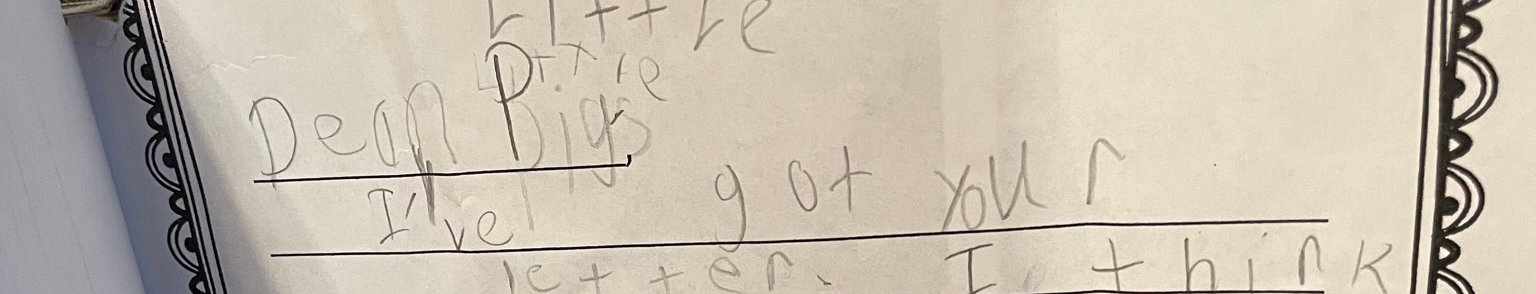 Little
Dear Pigs,
I've got your
letter. I think